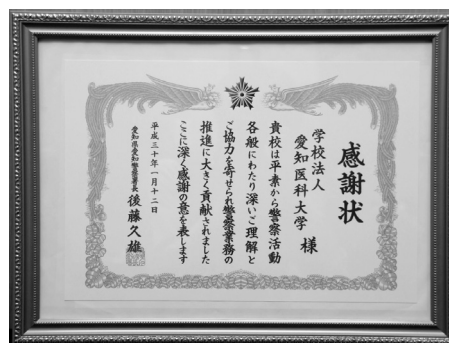 感謝状
学校法人
愛知医科大学 様
貴校は平素から警察活動
各般にわたり深いご理解と
ご協力を寄せられ警察業務の
推進に大きく貢献されました
ここに深く感謝の意を表します
平成三十年一月十二日
愛知県愛知警察署長 後藤久雄